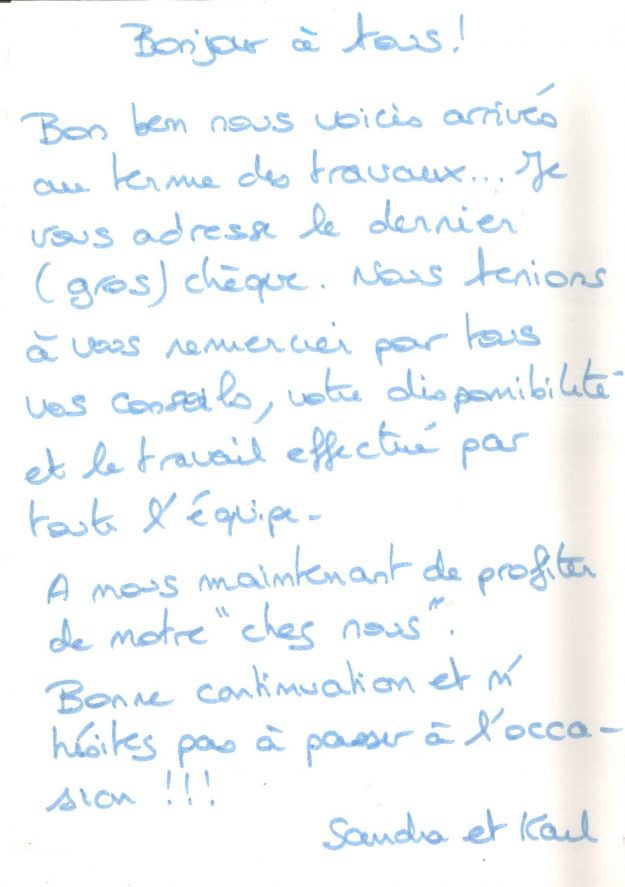 Bonjour à tous !
Bon ben nous voicis arrivés
au terme des travaux... Je
vous adresse le dernier
(gros) chèque. Nous tenions
à vous remercier par tous
vos conseils, votre disponibilité
et le travail effectué par
toute l'équipe-
A nous maintenant de profiter
de notre "chez nous".
Bonne continuation et n'
hésites pas à passer à l'occa-
sion !!!
Sandra et Karl